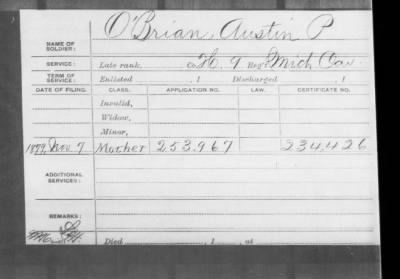 O'Brian, Austin P
NAME OF
SOLDIER:
SERVICE: Late rank, Co. H, 9 Reg't Mich Cav.
TERM OF
SERVICE: Enlisted , 1 Discharged , 1
DATE OF FILING. CLASS. APPLICATION NO. LAW. CERTIFICATE NO.
Invalid,
Widow,
Minor,
1877, Nov. 7 Mother 253,967 234,426
ADDITIONAL
SERVICES:
REMARKS:
Died , 1 , at